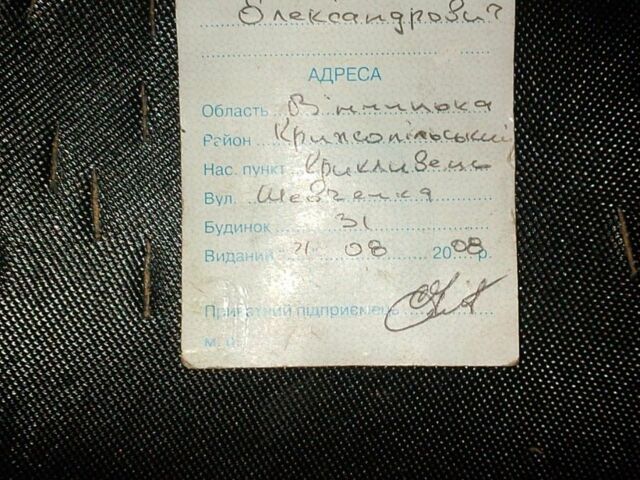 Олександрович
АДРЕСА
Область Вінницька
Район Крижопільський
Нас. пункт Крикливець
Вул. Шевченка
Будинок 31
Виданий 21 08 2008 р.
Приватний підприємець
м. п.